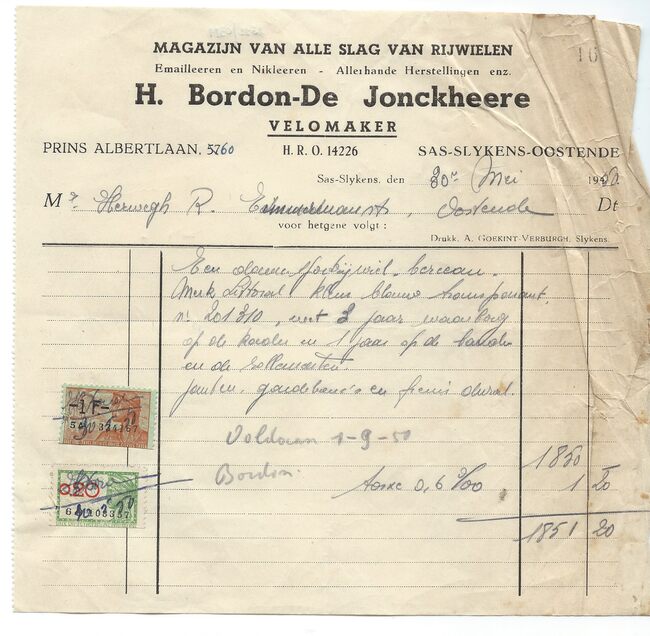 16
MAGAZIJN VAN ALLE SLAG VAN RIJWIELEN
Emailleeren en Nikleeren - Allerhande Herstellingen enz.
H. Bordon-De Jonckheere
VELOMAKER
PRINS ALBERTLAAN, 5760 H. R. O. 14226 SAS-SLYKENS-OOSTENDE
Sas-Slykens, den 30en Mei 1950.
Mr Herwegh R. Oostende Dt
voor hetgene volgt :
Drukk. A. GOEKINT-VERBURGH, Slykens.
Een dames Sportrijwiel
Merk Littoral kleur blauw transparant.
nr 201310, met 3 jaar waarborg
op de kader en 1 jaar op de banden
en de
janten - gardebou's en freins
-1 F-
Voldaan 1-9-50
Bordon.
1850
Taxe 0,6 0/00 1 20
1851 20
0,20